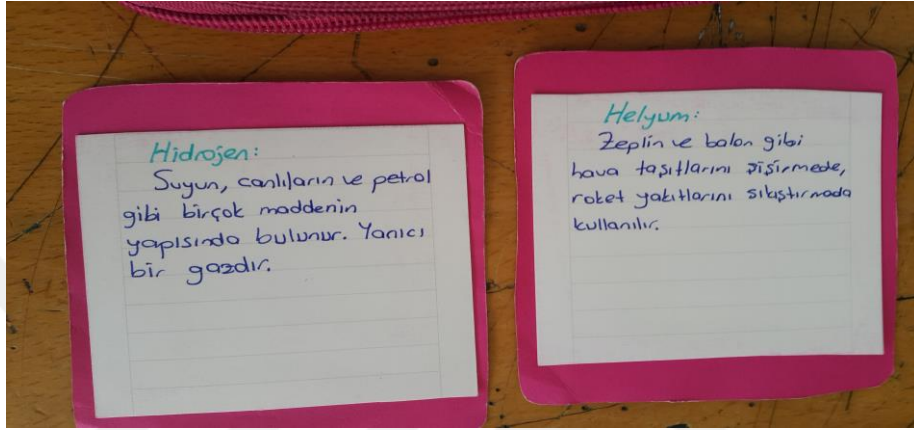 Hidrojen:
Suyun, canlıların ve petrol
gibi birçok maddenin
yapısında bulunur. Yanıcı
bir gazdır.
Helyum:
Zeplin ve balon gibi
hava taşıtlarını şişirmede,
roket yakıtlarını sıkıştırmada
kullanılır.